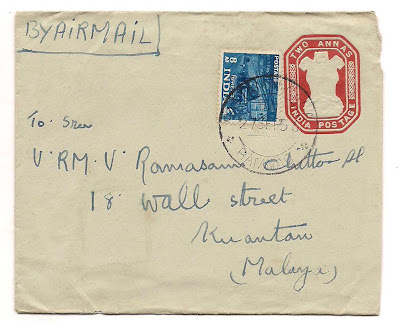 BY AIR MAIL
TWO ANNAS
INDIA POSTAGE
POSTAGE
8
INDIA
To Sree
V. RM. V. Ramasami Chettiar
18 Wall Street
Kuantan
(Malaya)